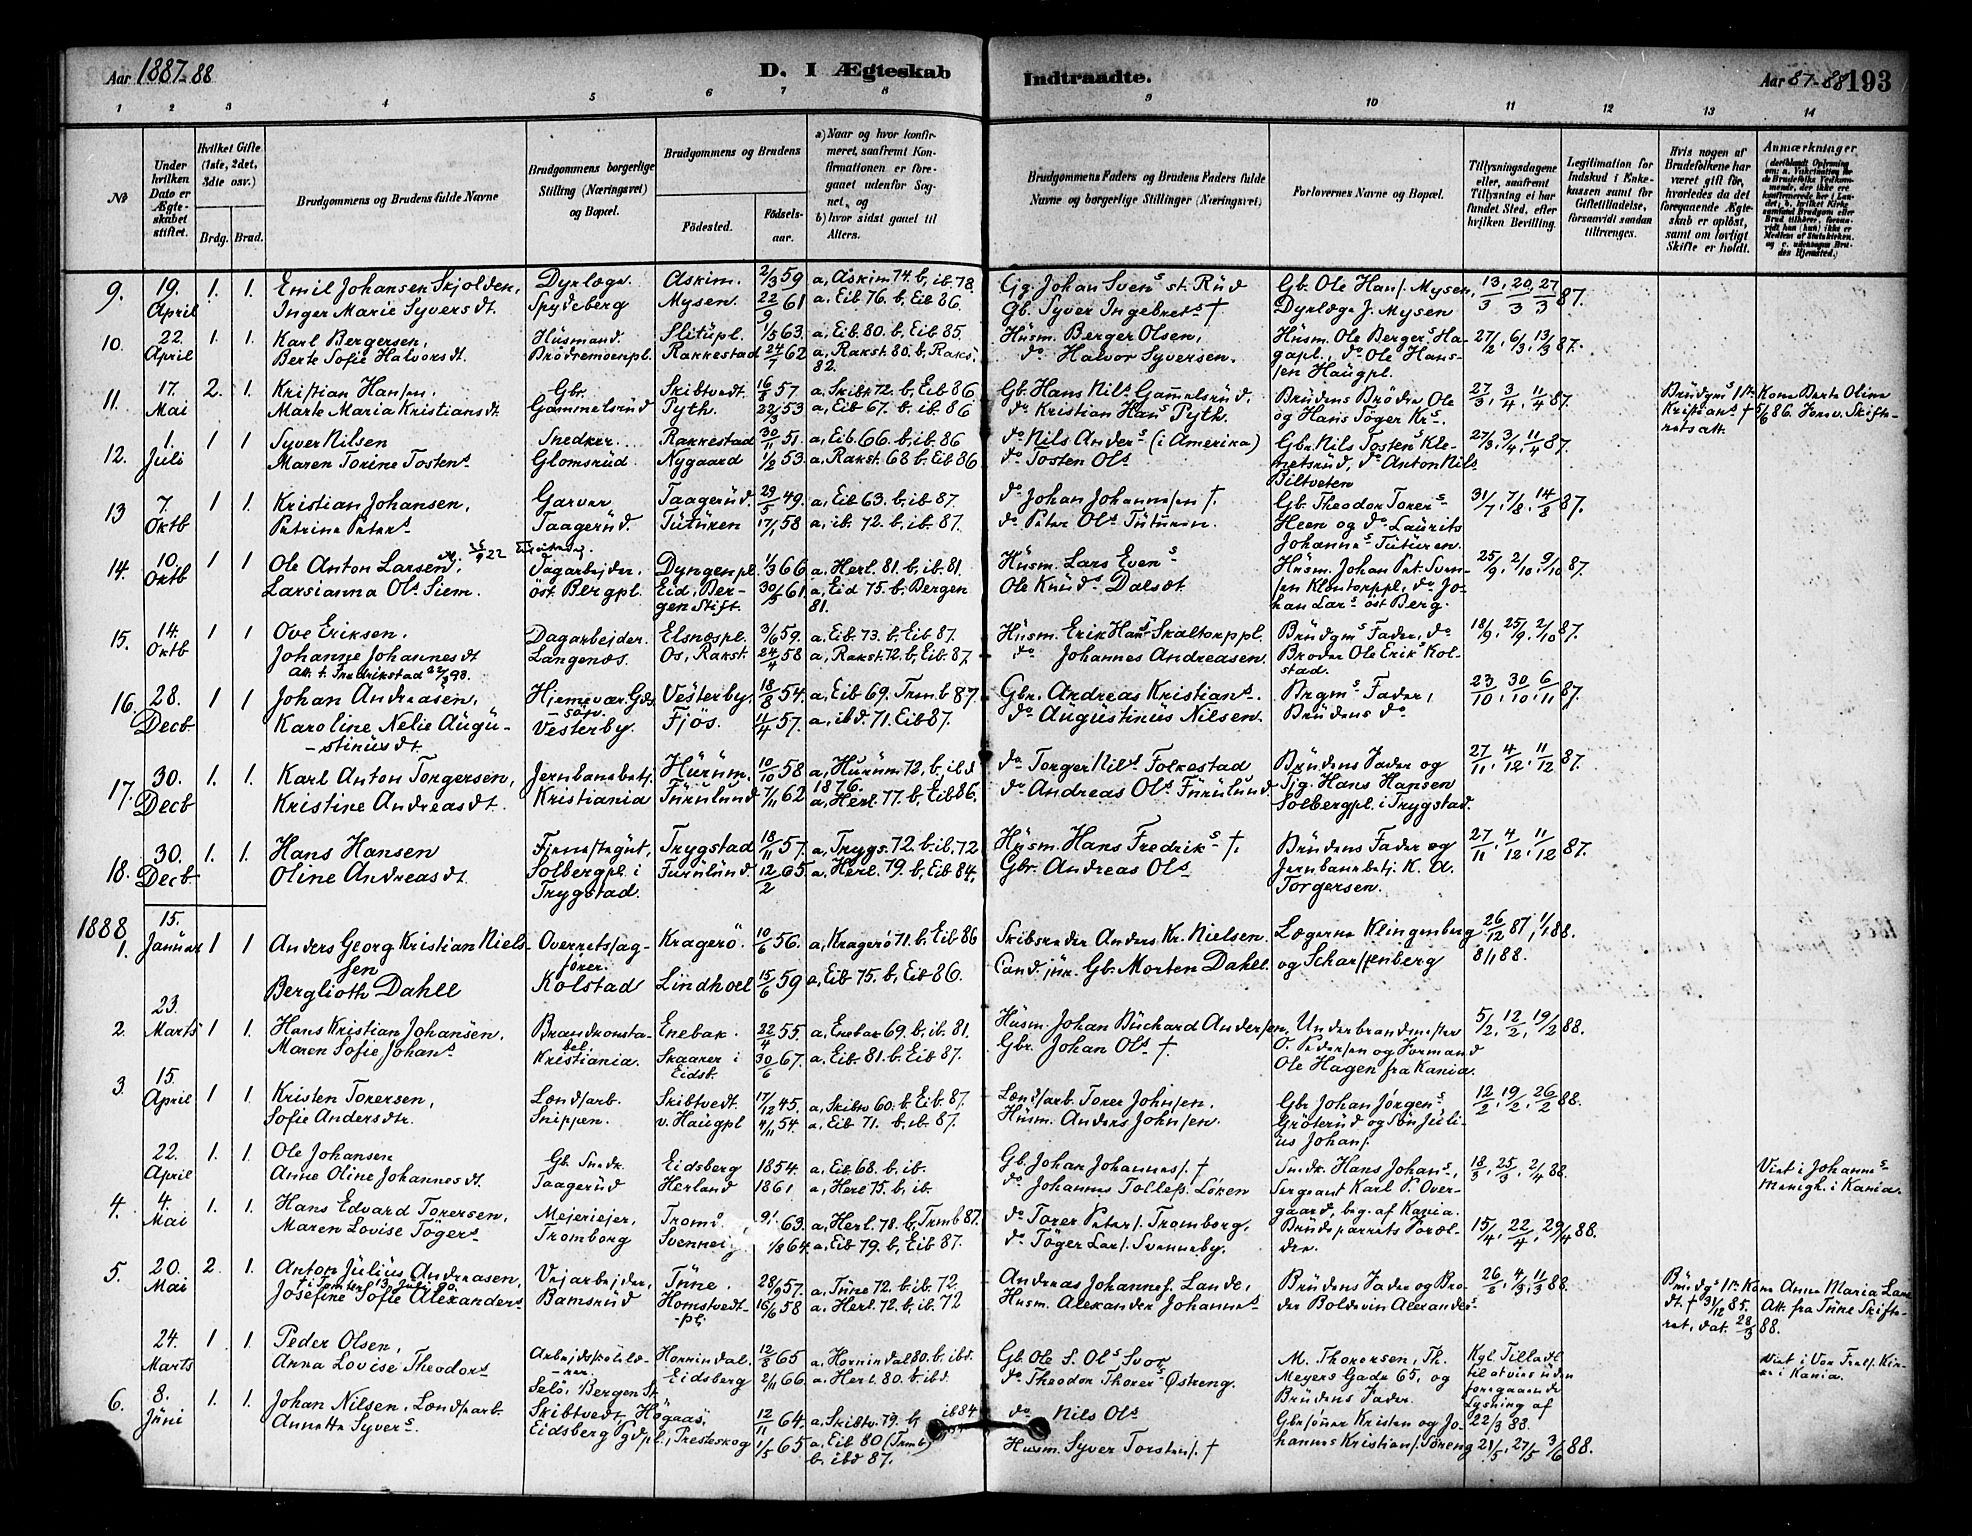 Aar 1887-88
D. I Ægteskab
Indtraadte.
Aar 87-88 193
1 2 3 4 5 6 7 8 9 10 11 12 13 14
№
Under hvilken Dato er Ægteskabet stiftet.
Hvilket Gifte (1ste, 2det, 3die osv.)
Brdg. Brud.
Brudgommens og Brudens fulde Navne
Brudgommens borgerlige Stilling (Næringsvei) og Bopæl.
Brudgommens og Brudens
Fødested.
Fødselsaar.
a) Naar og hvor konfirmeret, saafremt Konfirmationen er foregaaet udenfor Sognet, og
b) hvor sidst gaaet til Alters.
Brudgommens Faders og Brudens Faders fulde Navne og borgerlige Stillinger (Næringsvei)
Forlovernes Navne og Bopæl.
Tillysningsdagene eller, saafremt Tillysning ei har fundet Sted, efter hvilken Bevilling.
Legitimation for Indskud i Enkekassen samt for Giftetilladelse, forsaavidt saadan tiltrænges.
Hvis nogen af Brudefolkene har været gift før, hvorledes da det foregaaende Ægteskab er opløst, samt om lovligt Skifte er holdt.
Anmærkninger
9. 19. April 1. 1. Emil Johansen Skjolden, Dyrlæge. Askim. 2/3 59 a, Askim 74. b, ib. 78. Gg. Johan Svens st. Rud Gb. Ole Hans. Mysen, 13/3, 20/3, 27/3 87.
Inger Marie Syversdt. Spydeberg Mysen 22/9 61 a. Eib 76. b. Eib 86. Gb. Syver Ingebrets † Dyrlæge J. Mysen
10. 22. April 1. 1. Karl Bergersen, Husmand. Slitupl. 1/5 63. a, Eib. 80. b. Eib 85. Husm. Berger Olsen, Husm. Ole Bergers Ha- 27/2, 6/3, 13/3 87.
Berte Sofie Halvorsdt. Brødremoenpl. Rakkestad 24/7 62 a, Rakst. 80. b, Raks. 82. do Halvor Syversen. gapl., do Ole Hansen Haugpl.
11. 17. Mai 2. 1. Kristian Hansen. Gbr. Skibtvedt. 16/8 57 a. Skibt 72. b, Eib 86 Gb. Hans Nils Gammelsrud, Brudens Brødre Ole 27/3, 3/4, 11/4 87. Brudgms 1ste Kone Berte Oline
Marte Maria Kristiansdt. Gammelsrud Pyth. 22/3 53 a, Eib 67. b. ib. 86 do Kristian Hans Pyth. og Hans Tøger Krs. Kristians † 5/6 86. Skifteretsatt.
12. 1. Juli 1 1 Syver Nilsen Snedker. Rakkestad 30/11 51. a, Eib. 66. b. ib. 86 do Nils Anders (i Amerika) Gbr. Nils Tostens Kle- 27/3, 3/4, 11/4 87.
Maren Torine Tostens Glomsrud. Nygaard 1/2 53 a, Rakst. 68 b. Eib 86 do Tosten Ols metsrud, do Anton Nils Biltveten
13 7. Oktb 1 1 Kristian Johansen, Garver Taagerud. 29/5 49. a, Eib 63. b. ib 87. do Johan Johannesen †. Gb. Theodor Torers 31/7, 7/8, 14/8 87.
Petrine Peters Taagerud. Tuturen 17/1 58 a, ib. 72. b, ib. 87. do Peter Ols Tuturen. Heen og do Laurits Johannes Tuturen.
14. 10. Oktb 1 1 Ole Anton Larsen, Dagarbejder. Dyngenpl. 1/3 66 a. Herl. 81. b. ib. 81. Husm. Lars Evens Husm. Johan Pet. Sven- 25/9, 2/10, 9/10 87.
Larsianna Ols Siem. öst Bergpl. Eid, Bergen Stift. 30/5 61. a, Eid 75. b. Bergen 81. Ole Knuds Dalsdt. sen Klontorppl, do Johan Lars öst Berg.
15. 14. Oktb 1 1 Ove Eriksen. Dagarbejder. Elsnæspl. 3/6 59. a. Eib. 73. b, Eib 87. Husm. Erik Hans Skaltorppl. Brudgms Fader, do 18/9, 25/9, 2/10 87.
Johanne Johannesdt Langenæs. Os, Rakst. 24/4 58 a, Rakst. 72. b, Eib. 87. do Johannes Andreasen. Broder Ole Eriks Kolstad.
Att. t. Fredrikstad 22/8 98.
16. 28. Decb 1 1 Johan Andreasen, Hjemvær. Gdssøn. Vesterby. 18/8 54. a, Eib 69. Tromb 87. Gbr. Andreas Kristians. Brgms Fader, 23/10, 30/10, 6/11 87.
Karoline Nelie Augustinusdt. Vesterby. Fjös. 11/4 57. a, ibd. 71. Eib 87. do Augustinus Nilsen. Brudens do
17. 30. Decb 1. 1. Karl Anton Torgersen, Jernbanebetj. Hurum. 10/10 58 a, Hurum 72, b, ibd 1876. do Torger Nils Folkestad Brudens Fader og 27/11, 4/12, 11/12 87.
Kristine Andreasdt. Kristiania Furulund 7/11 62 a, Herl. 77. b, Eib 86. do Andreas Ols Furulund Sjg. Hans Hansen Solbergpl. i Trygstad.
18. 30. Decb 1. 1. Hans Hansen Trygstad 18/11 57. a, Trygs. 72. b. ib. 72 Husm. Hans Fredriks †. Brudens Fader og 27/11, 4/12, 11/12 87.
Oline Andreasdt. Solbergpl. i Trygstad. Furulund. 12/2 65. a, Herl. 79. b, Eib 84. Gbr. Andreas Ols Jernbanebetj. K. A. Torgersen.
1888
1. 15. Januar 1 1 Anders Georg Kristian Nielssen Overretssagfører. Kragerö. 10/6 56. a, Kragerö 71. b. Eib 86 Skibsreder Anders Kr. Nielsen. Lægerne Klingenberg 26/12 87, 1/1 88.
Berglioth Dahll Kolstad Lindhoel 15/6 59 a, Eib 75. b, Eib 86. Cand. jur. Gb. Morten Dahll. og Scharffenberg 8/1 88.
2. 23. Marts 1. 1. Hans Kristian Johansen. Brandkonstabel. Enebak. 22/4 55. a. Enebak 69. b. ib. 81. Husm. Johan Buchard Andersen, Underbrandmester 5/2, 12/2, 19/2 88.
Maren Sofie Johans Kristiania. Skaarer i Eidsb. 30/6 67. a, Eib. 81. b. Eib 87. Gbr. Johan Ols †. O. Pedersen og Formand Ole Hagen fra Kania.
3. 15. April 1 1 Kristen Torersen, Lændsarb. Skibtvedt. 17/12 45. a, Skibtv 60. b. Eib. 87. Lændsarb. Torer Johnsen. Gbr Johan Jörgens 12/2, 19/2, 26/2 88.
Sofie Andersdtr. Snippen. v. Haugpl 4/11 54. a, Eib 71. b. ib. 87. Husm. Anders Johnsen. Gröterud og Søn Julius Johans.
22. April 1. 1. Ole Johansen Gb. Snedk. Eidsberg 1854. a, Eib 68. b. ib. Gb. Johan Johannes. † Snedk. Hans Johans, 18/3, 25/3, 2/4 88. Viet i Johannes
Anne Oline Johannesdt. Taagerud Herland 1861 a, Herl 75. b, ib. do Johannes Tollefs. Löken Sergeant Karl P. Overgaard, beg. af Kania. Menigh. i Kania.
4. 4. Mai 1. 1. Hans Edvard Torersen, Mejeriejer, Tromb. 9/1 63. a, Herl. 78. b, Tromb 87. do Torer Peters. Tromborg. Brudeparrets Foræl- 15/4, 22/4, 29/4 88.
Maren Lovise Tögers Tromborg Svenneby 1/8 64. a, Eib 79. b, Eib 87. do Töger Lars. Svenneby. dre.
5. 20. Mai 2. 1. Anton Julius Andreasen, Vejarbejder, Tune. 28/9 57. a, Tune 72. b. ib. 72 Andreas Johannes. Lande, Brudens Fader og Bro- 26/2, 4/3, 11/3 88. Brudgs 1ste Kone Anna Maria
Josefine Sofie Alexanders Bamsrud Homstvedtpl. 16/6 58 a. Herl. 72. b. ib. 72 Husm. Alexander Johannes der Boldevin Alexanders. dt. † 31/12 85. Att. fra Tune Skifteret, dat. 28/3 88.
24. Marts 1 1. Peder Olsen, Hornindal. 12/8 65 a, Hornindal 80. b. ibd. Gb. Ole S. Ols Svor M. Thoresen, Th. Kgl. Tilladl.
Anna Lovise Theodors Selö, Bergen St. Eidsberg 2/11 66. a. Herl. 80. b. ibd. do Theodor Thorers Östreng. Meyers Gade 65, og Brudens Fader. til at vies uden foregaaende Lysning af 22/3 88. i Kania.
6. 8. Juni 1. 1. Johan Nilsen, Lændsarb. Skibtvedt, Högaas, 12/11 64. a. Skibtv. 79. b, ib 84 do Nils Ols Gbrsønner Kristen og Jo-
Annette Syvers. Eidsberg Presteskog 1/5 65 a. Eib 80 (Tromb) b. ibd 87. Husm. Syver Torstens. † hannes Kristians. Töreng 21/5, 27/5, 3/6 88.